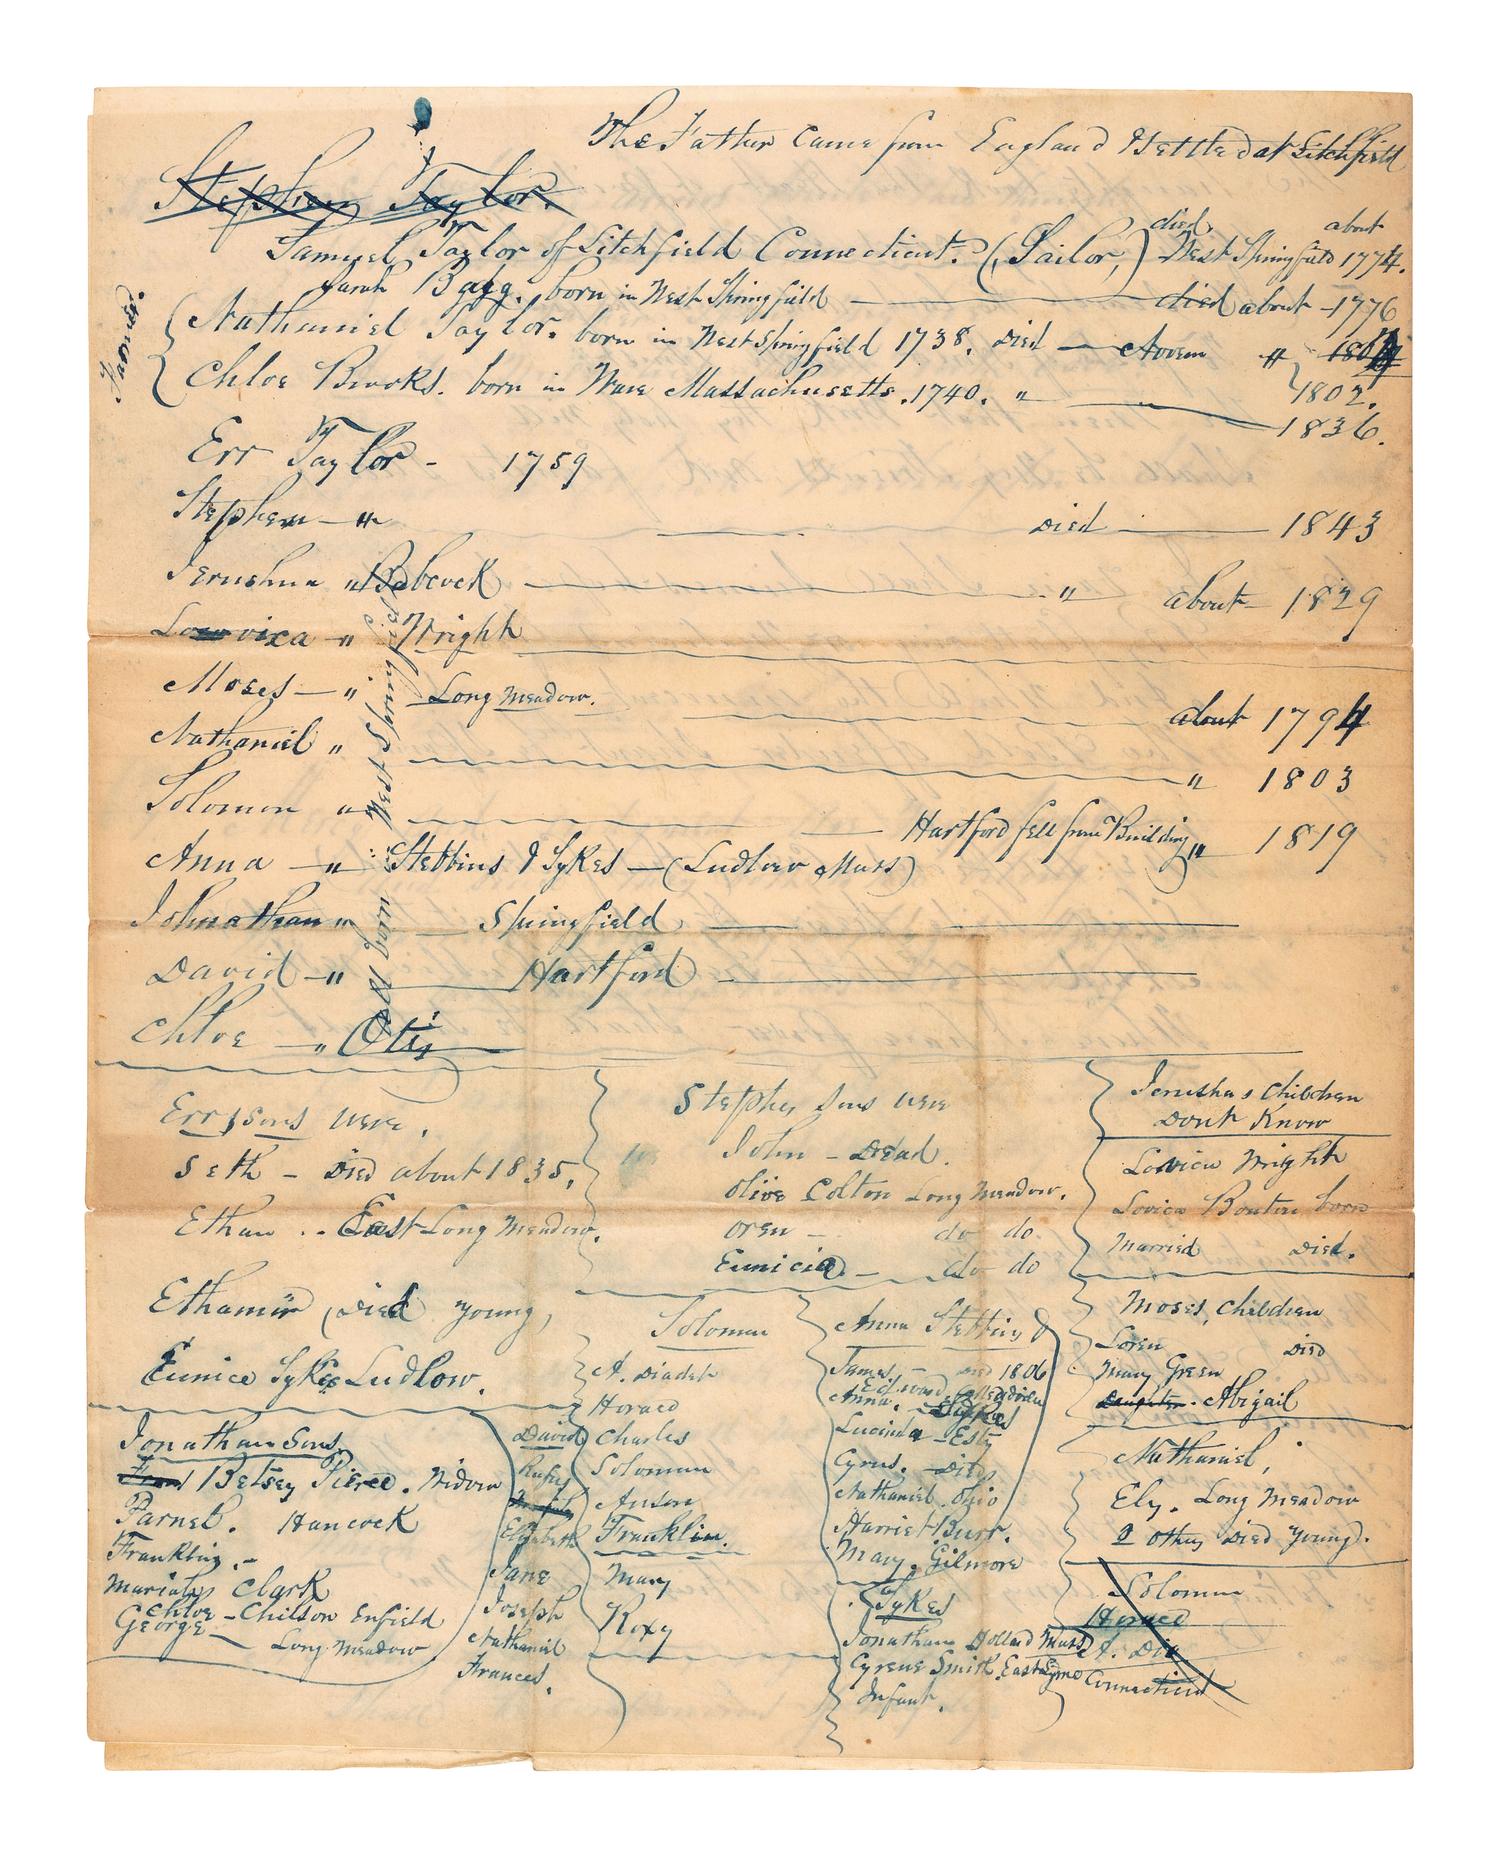 The Father came from England & Settled at Litchfield
Stephen Taylor.
Samuel Taylor of Litchfield Connecticut. (Sailor,) died, West Springfield about 1774.
Sarah Bagg, born in West Springfield — died about 1776
Farmer
Nathaniel Taylor. born in West Springfield 1738. Died — 
1802.
Chloe Brooks. born in Ware Massachusetts. 1740. " — 1836.
Err Taylor - 1759
Stephen — " Died — 1843
Jerusha " Babcock — " about 1829
Lovica — " Wright
Moses — " Long Meadow. about 1794
Nathaniel " — " 1803
Solomon " — Hartford fell from Building " 1819
Anna — " Stebbins & Sykes — (Ludlow Mass)
Johnathan " — Springfield —
David — " — Hartford —
Chloe — " Otis
all born West Springfield
Errs Sons were.
Seth - Died about 1835.
Ethan .. East Long Meadow.
Ethamir (Died young,
Eunice Sykes Ludlow.
Stephes Sons were
John - Dead.
Olive Colton Long Meadow.
Oren — do do.
Eunicia. — do do
Jerusha s Children
Dont Know
Lovicu Wright
Lovica Bonton born
Married Died.
Moses, Children
Loren Died
Mary Green
Daughter - Abigail
Nathaniel,
Ely. Long Meadow
2 others Died Young.
Solomon
Horace
A. Dia
Connecticut
Jonathan Sons
Betsey Pierce. Widow
Parnel. Hancock
Franklin. -
Mariah Clark
Chloe - Chilson Enfield
George — Long Meadow
David
Rufus
Elizabeth
Jane
Joseph
Nathaniel
Frances.
Solomon
A. Diadah
Horace
Charles
Solomon
Anson
Franklin.
Mary
Roxy
Anna Stebbins &
James. - Died 1806
Edward
Anna. - Sykes
Lucinda - Esty
Cyrus. - Died
Nathaniel. Ohio
Harriet Burr.
Mary. Gilmore
Sykes
Jonathan Holland Mass
Cyrene Smith. East Lyme
Infant.